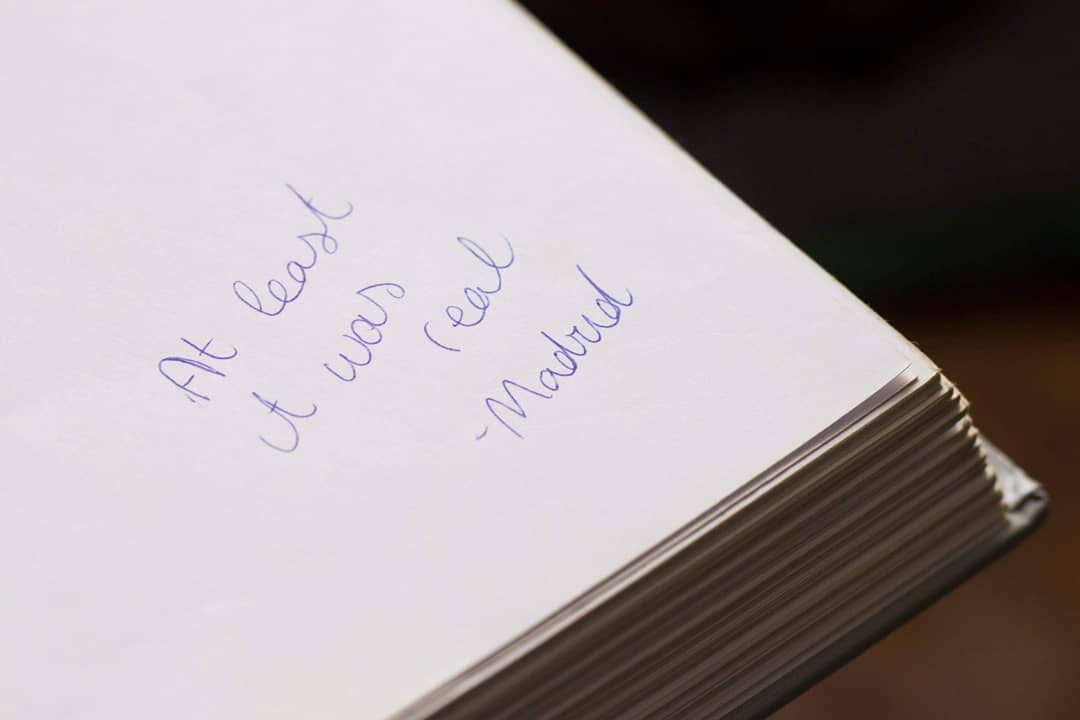 At least
it was
real
-Madrid